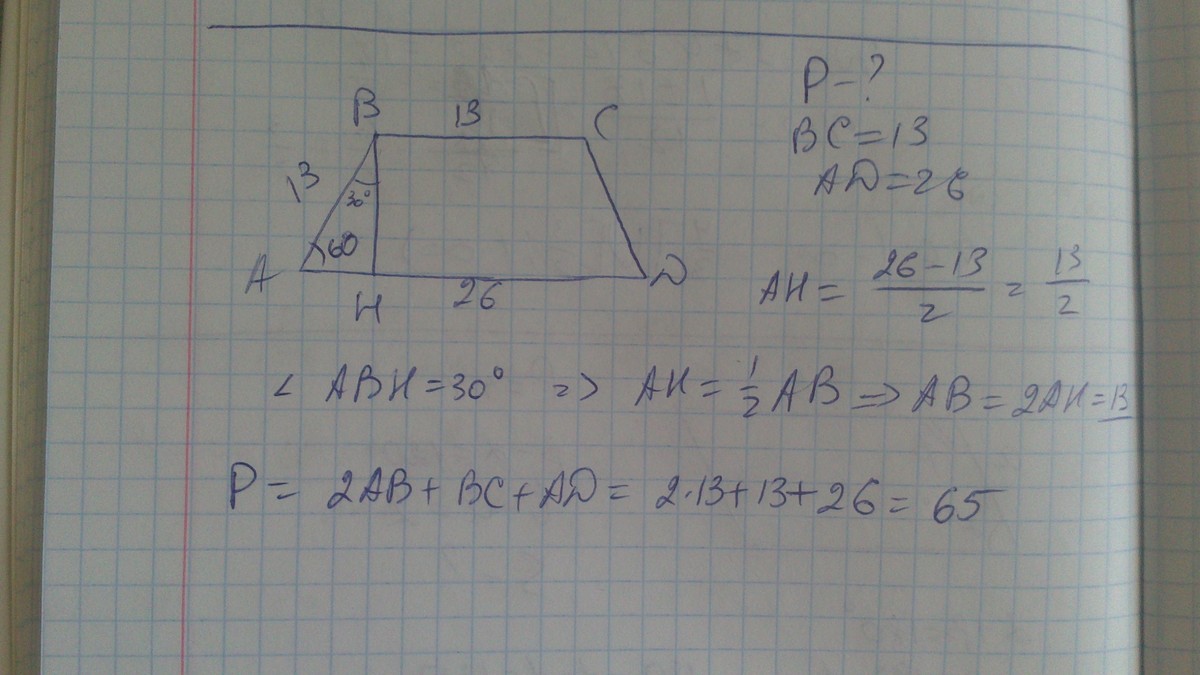 P-?
B 13 C
BC=13
13
AD=26
30°
60
A D
H 26
AH = (26-13)/2 = 13/2
< ABH=30° => AH= 1/2 AB => AB = 2AH=13
P= 2AB+ BC+AD= 2·13+13+26= 65